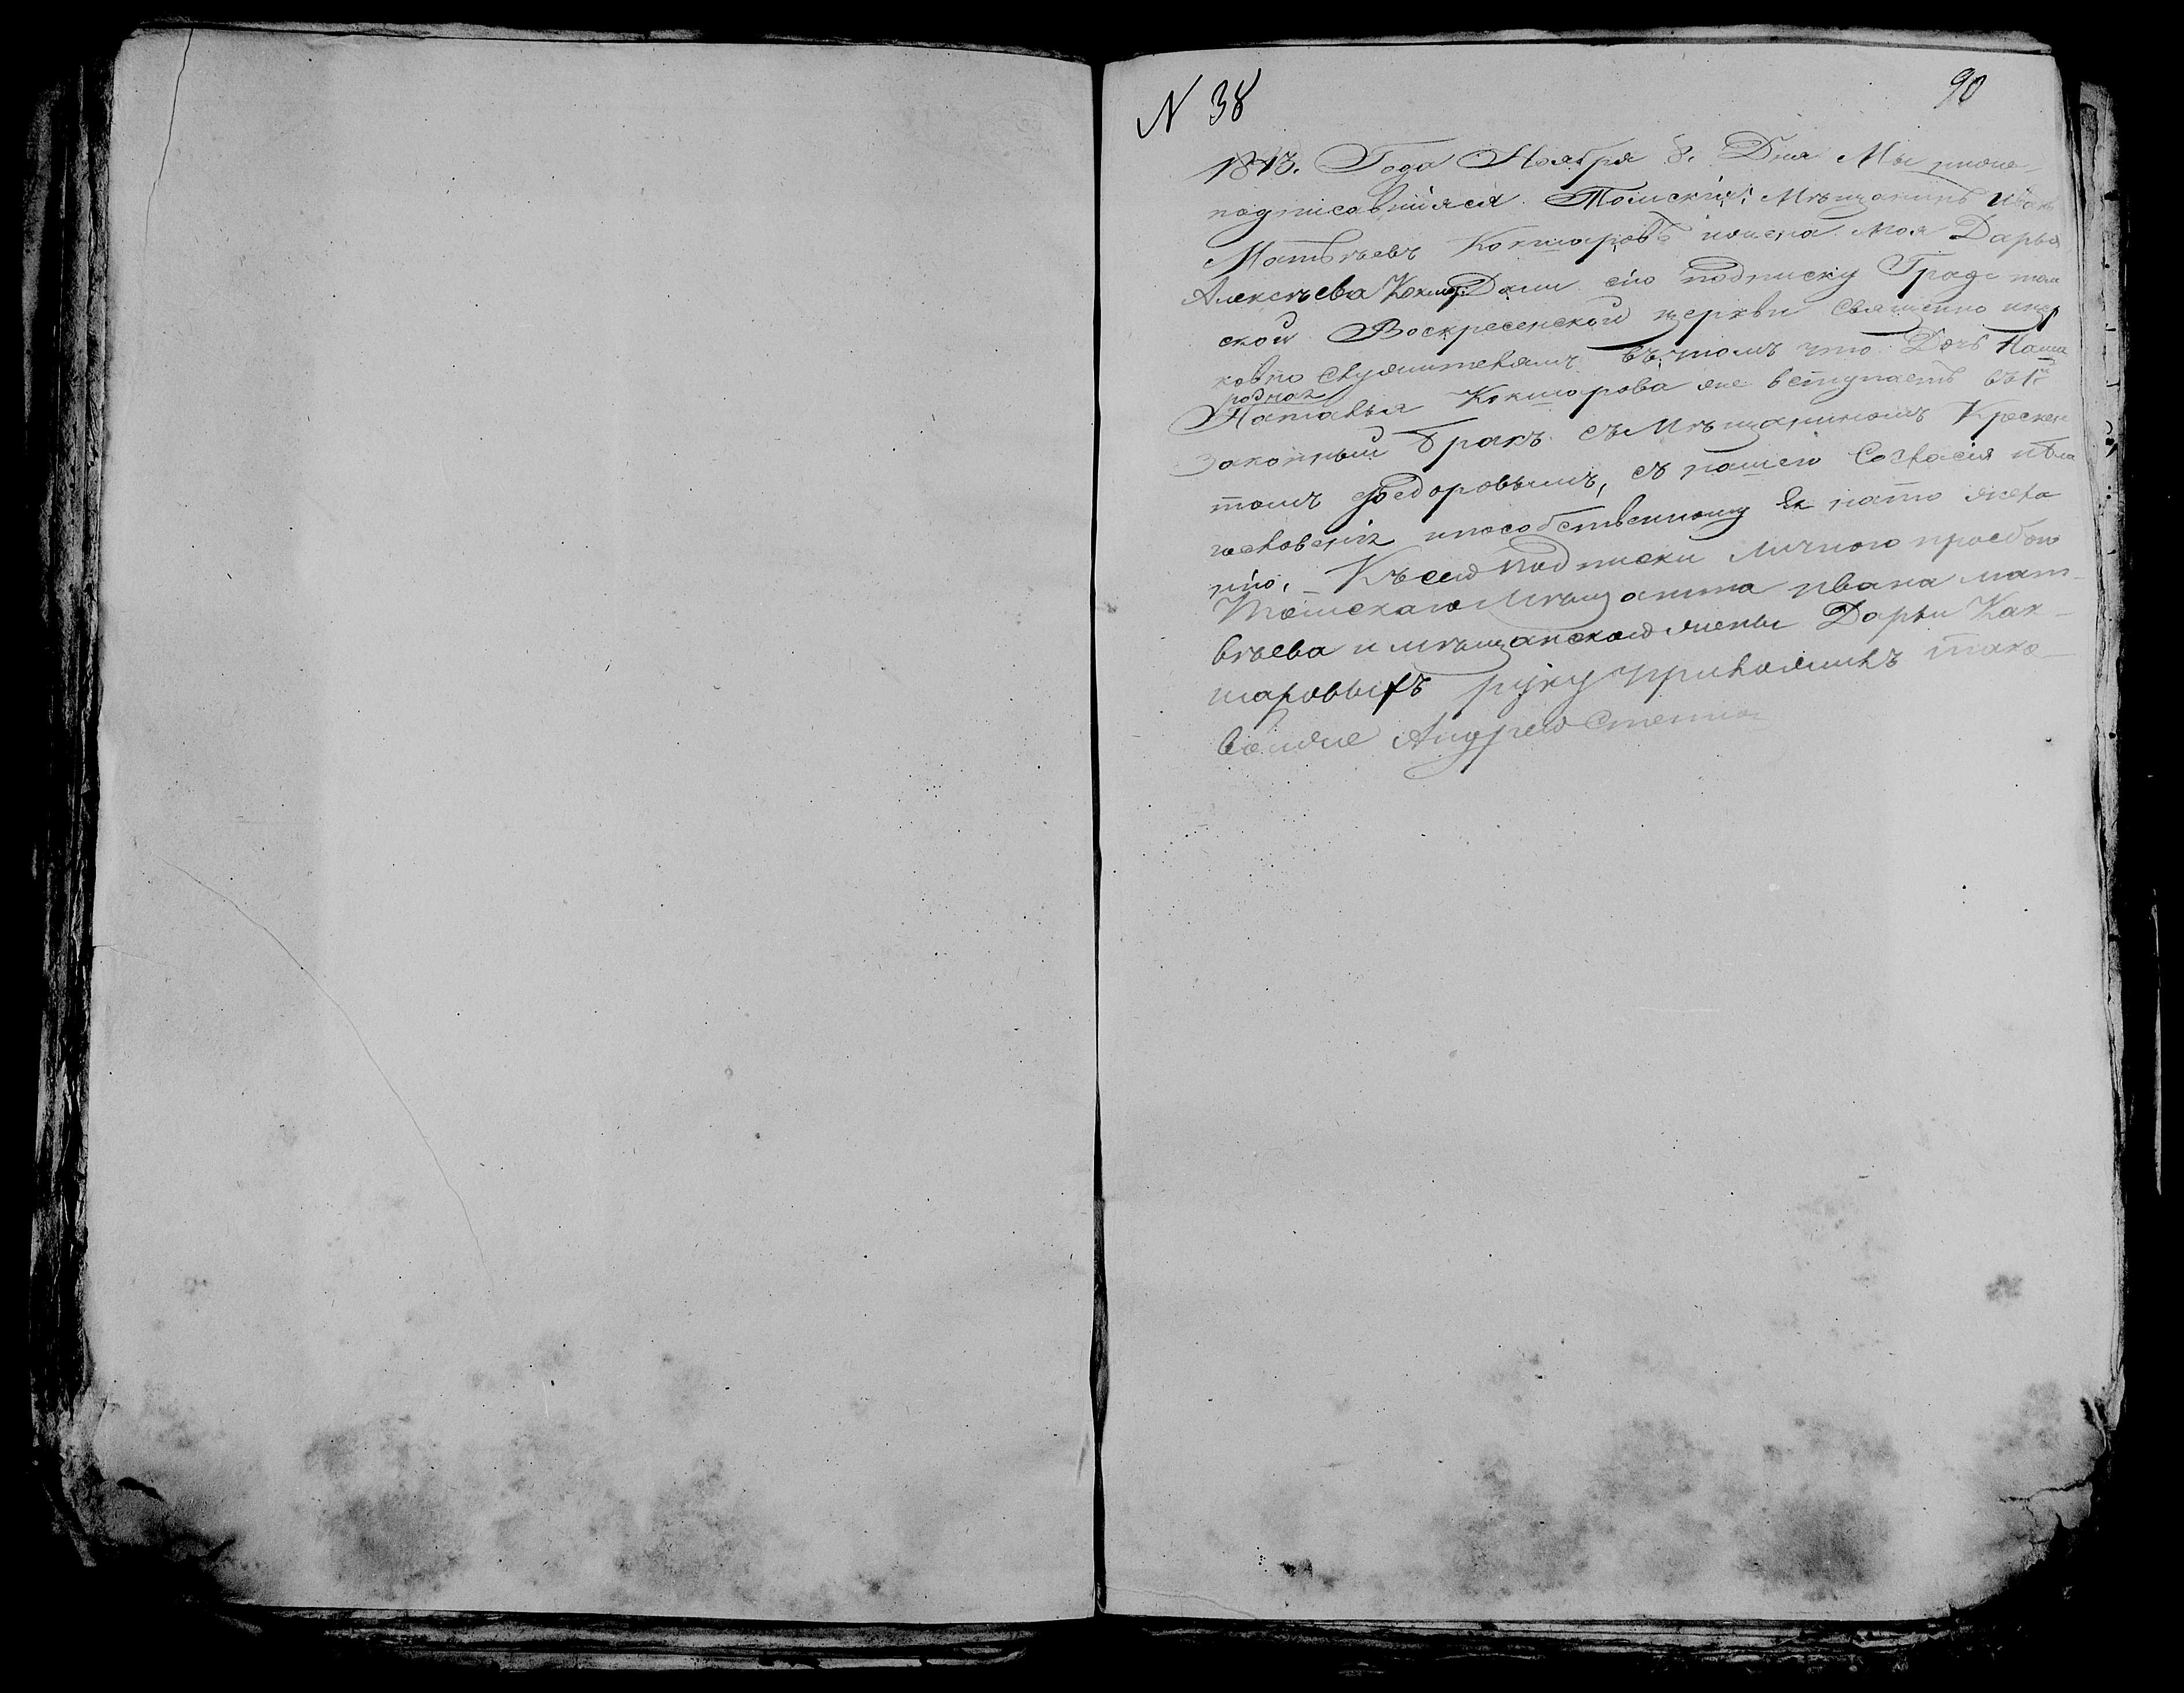 N 38
90
1873. Года Ноября 8. Дня Мы ниже-
подписавшіяся Томскій Мѣщанинъ Иванъ
Матвѣевъ Кокшаровъ ижена моя Дарья
Алексѣева Кокшар: Дали сію подписку Градо том
ской Воскресенской церкви Священно ицер
ковно служителямъ вътомъ что Дочь Наша
родная
Наталья Кокшарова же вступаетъ въ 1й
Законный бракъ съ Мѣщаниномъ Крескен
томъ Федоровымъ, съ нашего Согласія ибла
гословенія ипособственному Ея нато жела
нію. Къ сей Подписки личною прозбою
Томскаго Мѣщанина ивана мат-
вѣева и мѣщанской жены Дарьи Как-
шаровыхъ руку приложилъ тако-
войже Андрей